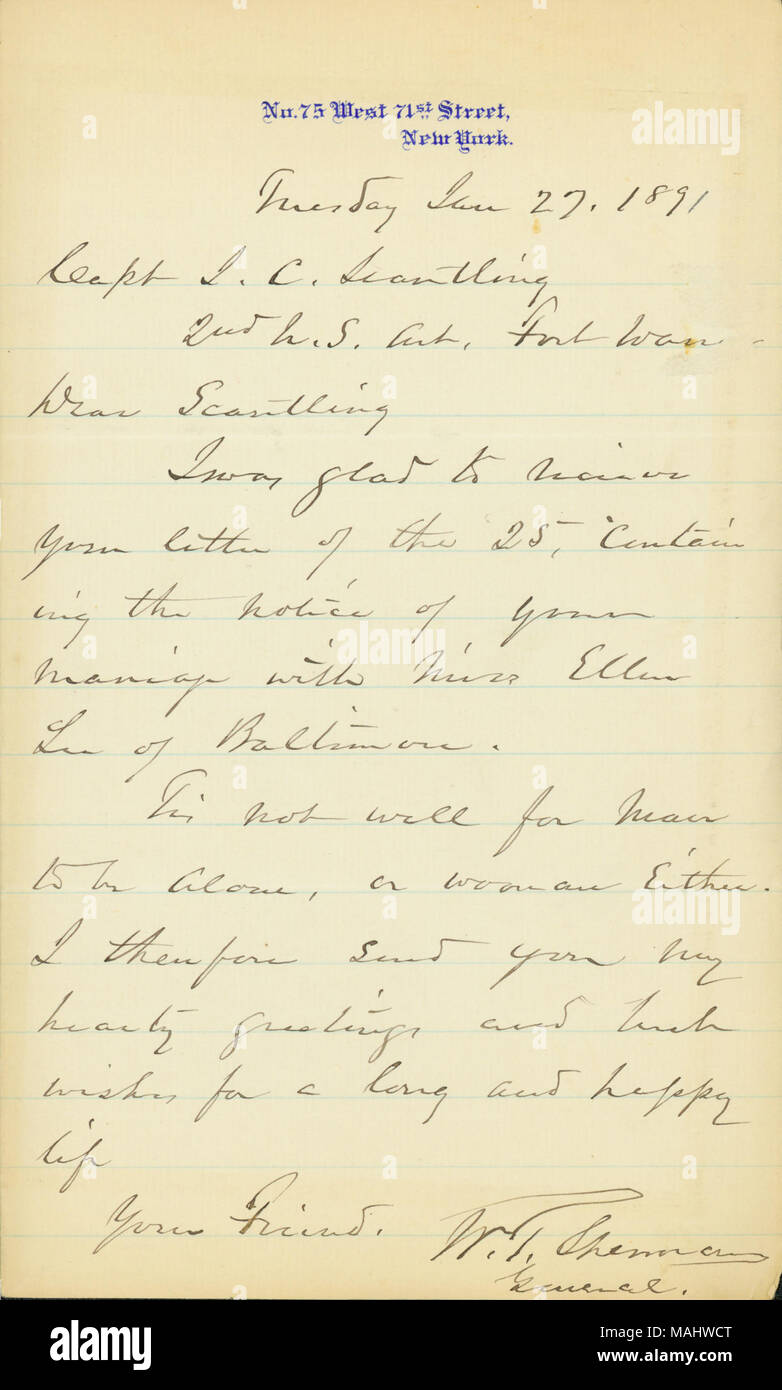 No. 75 West 71st Street,
New York.
Tuesday Jan 27. 1891
Capt J. C. Scantling
2nd U.S. Art. Fort Warren
Dear Scantling
I was glad to receive
your letter of the 25, Contain
ing the notice of your
marriage with Miss Ellen
Lee of Baltimore.
Tis not well for man
to be alone, or woman Either.
I therefore send you my
hearty greetings and best
wishes for a long and happy
life
Your Friend.
W. T. Sherman
General.
alamy
Image ID: MAHWCT
www.alamy.com